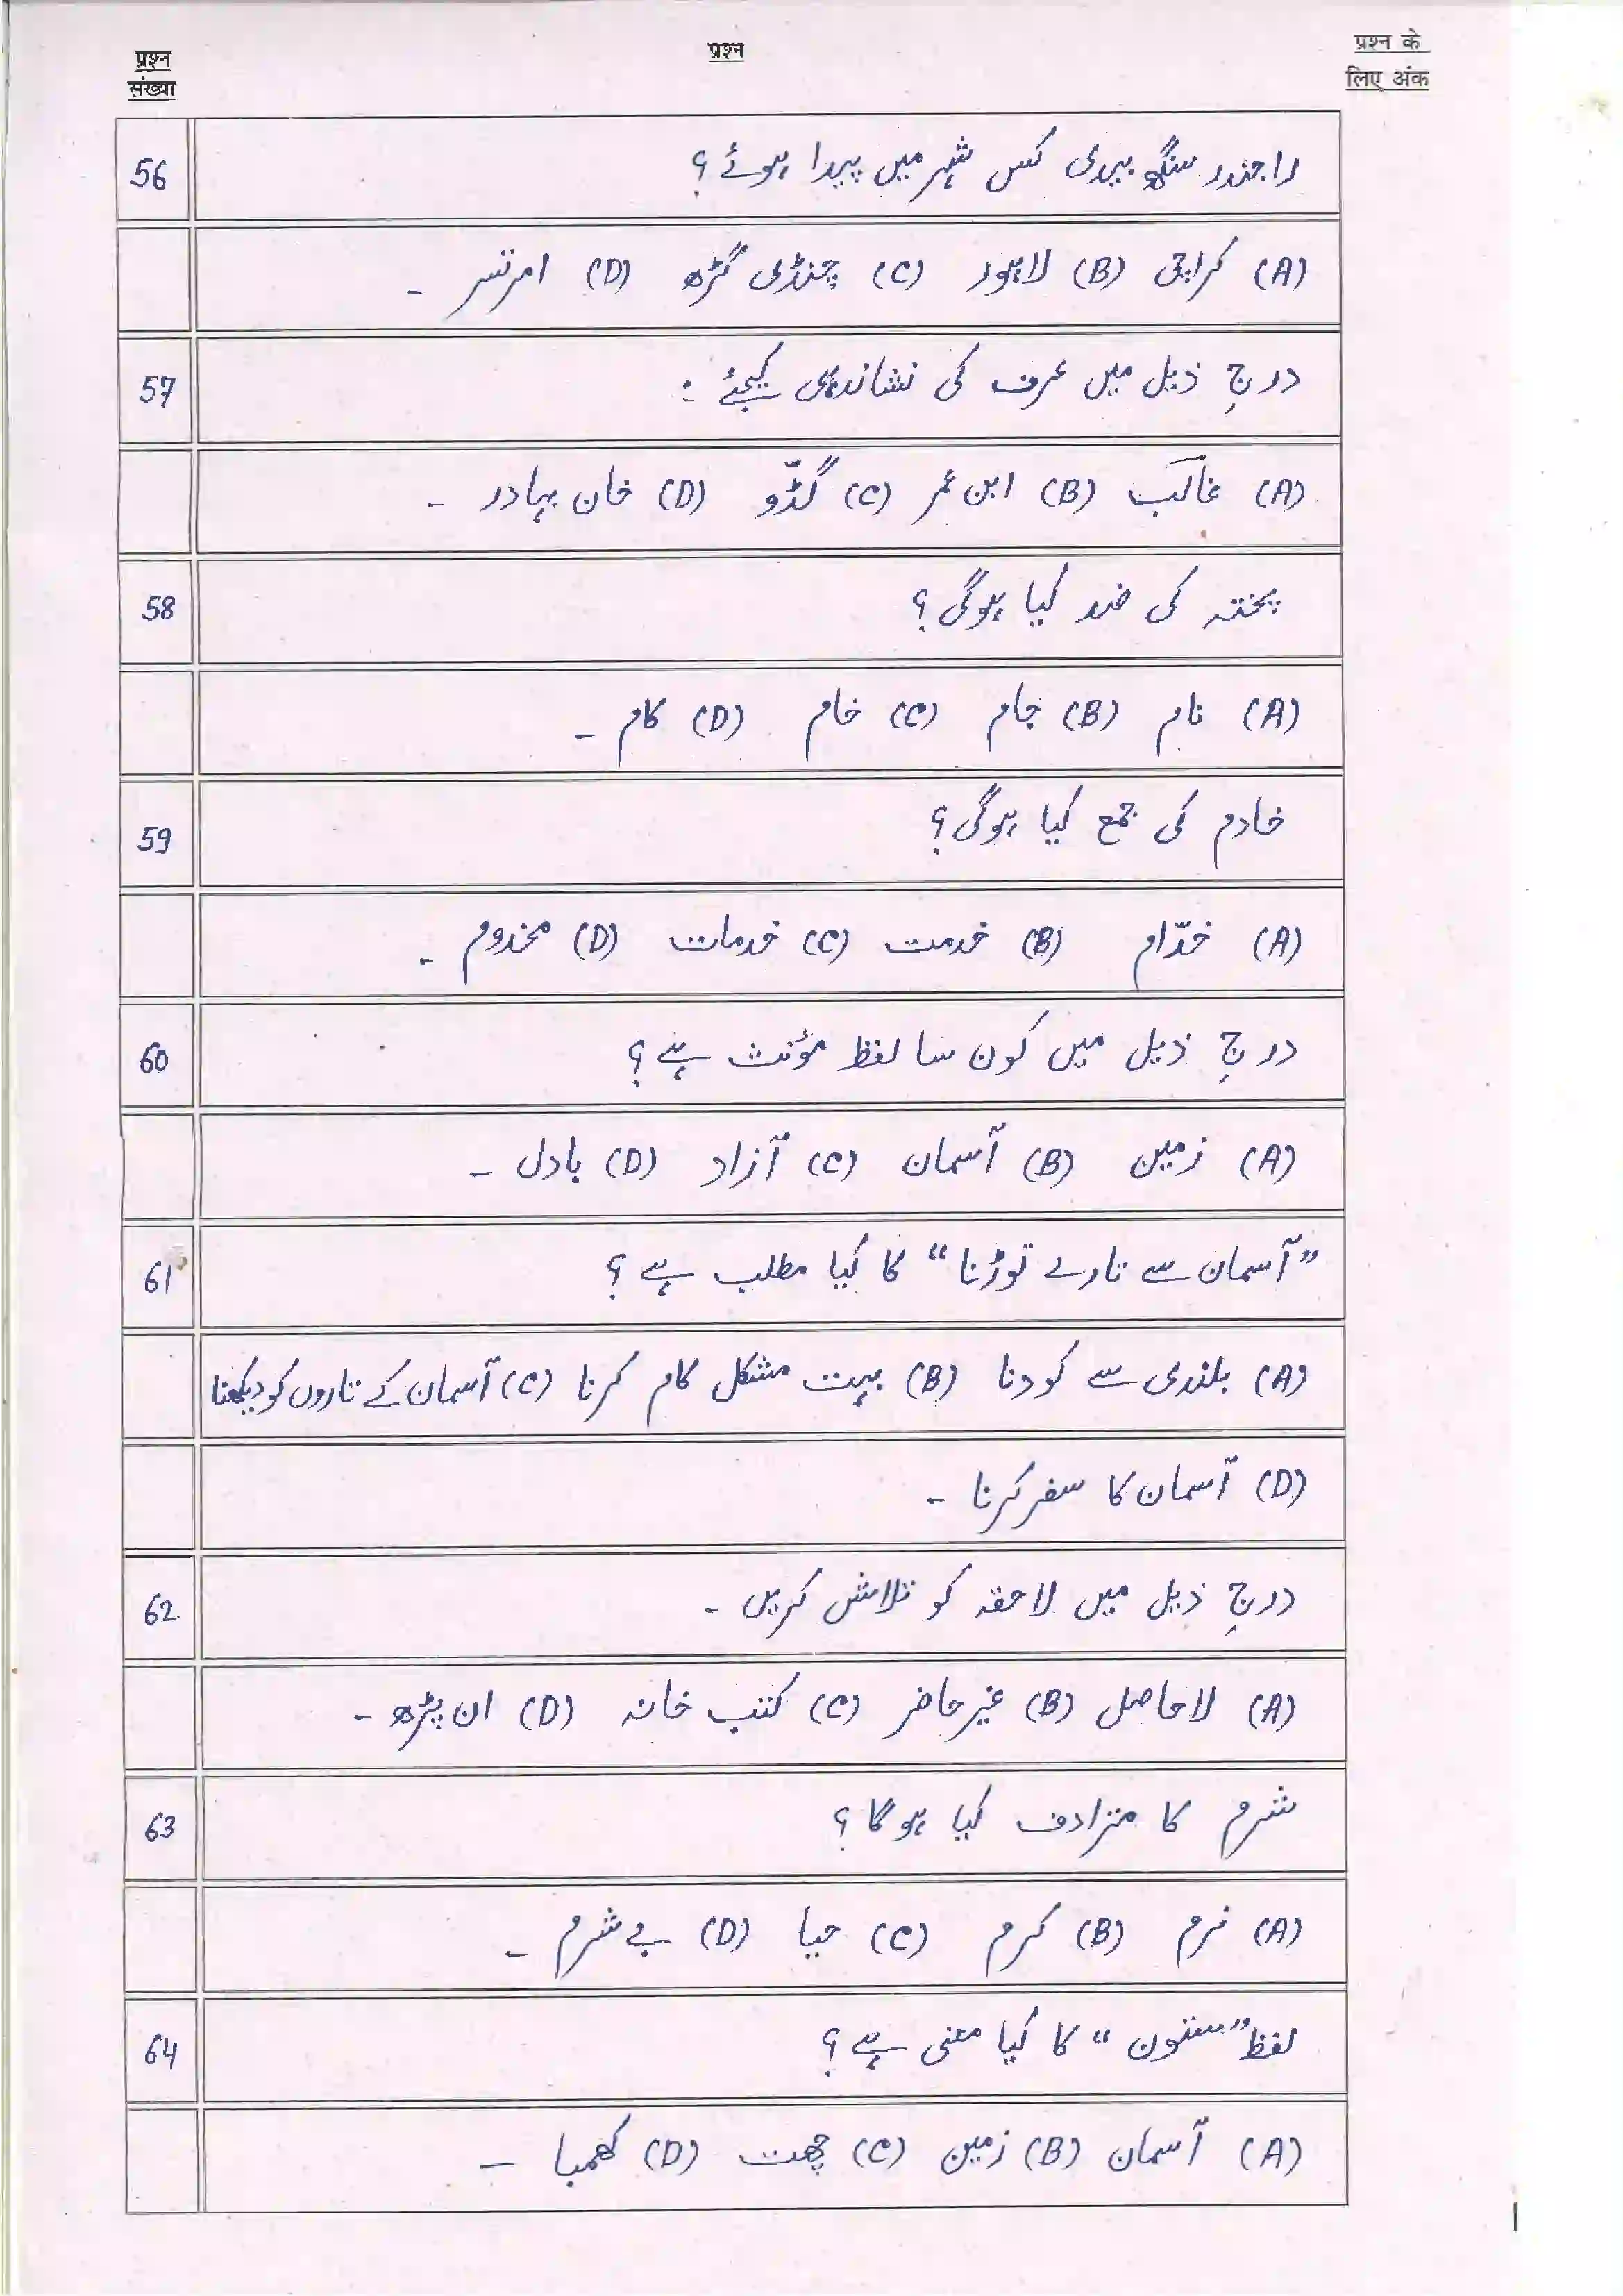 प्रश्न संख्या
प्रश्न
प्रश्न के लिए अंक
56 راجندر سنگھ بیدی کس شہر میں پیدا ہوئے؟
(A) کراچی (B) لاہور (C) چنڈی گڑھ (D) امرتسر ۔
57 درجِ ذیل میں عرف کی نشاندہی کیجئے :
(A) غالب (B) ابن عمر (C) گڈّو (D) خان بہادر ۔
58 پختہ کی ضد کیا ہوگی؟
(A) نام (B) جام (C) خام (D) کام ۔
59 خادم کی جمع کیا ہوگی؟
(A) خدّام (B) خدمت (C) خدمات (D) مخدوم ۔
60 درجِ ذیل میں کون سا لفظ مؤنث ہے؟
(A) زمین (B) آسمان (C) آزاد (D) بادل ۔
61 ”آسمان سے تارے توڑنا“ کا کیا مطلب ہے؟
(A) بلندی سے کودنا (B) بہت مشکل کام کرنا (C) آسمان کے تاروں کو دیکھنا
(D) آسمان کا سفر کرنا ۔
62 درجِ ذیل میں لاحقہ کو تلاش کریں ۔
(A) لاحاصل (B) غیر حاضر (C) کتب خانہ (D) ان پڑھ ۔
63 شرم کا مترادف کیا ہوگا؟
(A) نرم (B) کرم (C) حیا (D) بے شرم ۔
64 لفظ ”ستون“ کا کیا معنی ہے؟
(A) آسمان (B) زمین (C) چھت (D) کھمبا ۔